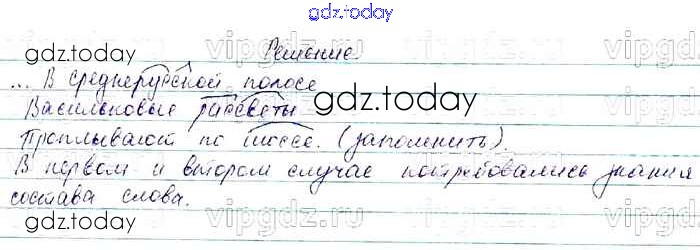 gdz.today
gdz.today Решение vipgdz
... В среднерусской полосе
Васильковые рассветы
gdz.today
Проплывают по шоссе. (запомнить).
В первом и втором случае потребовались знания
состава слова.
gdz.today vipgdz.ru vipgdz.ru vipgdz